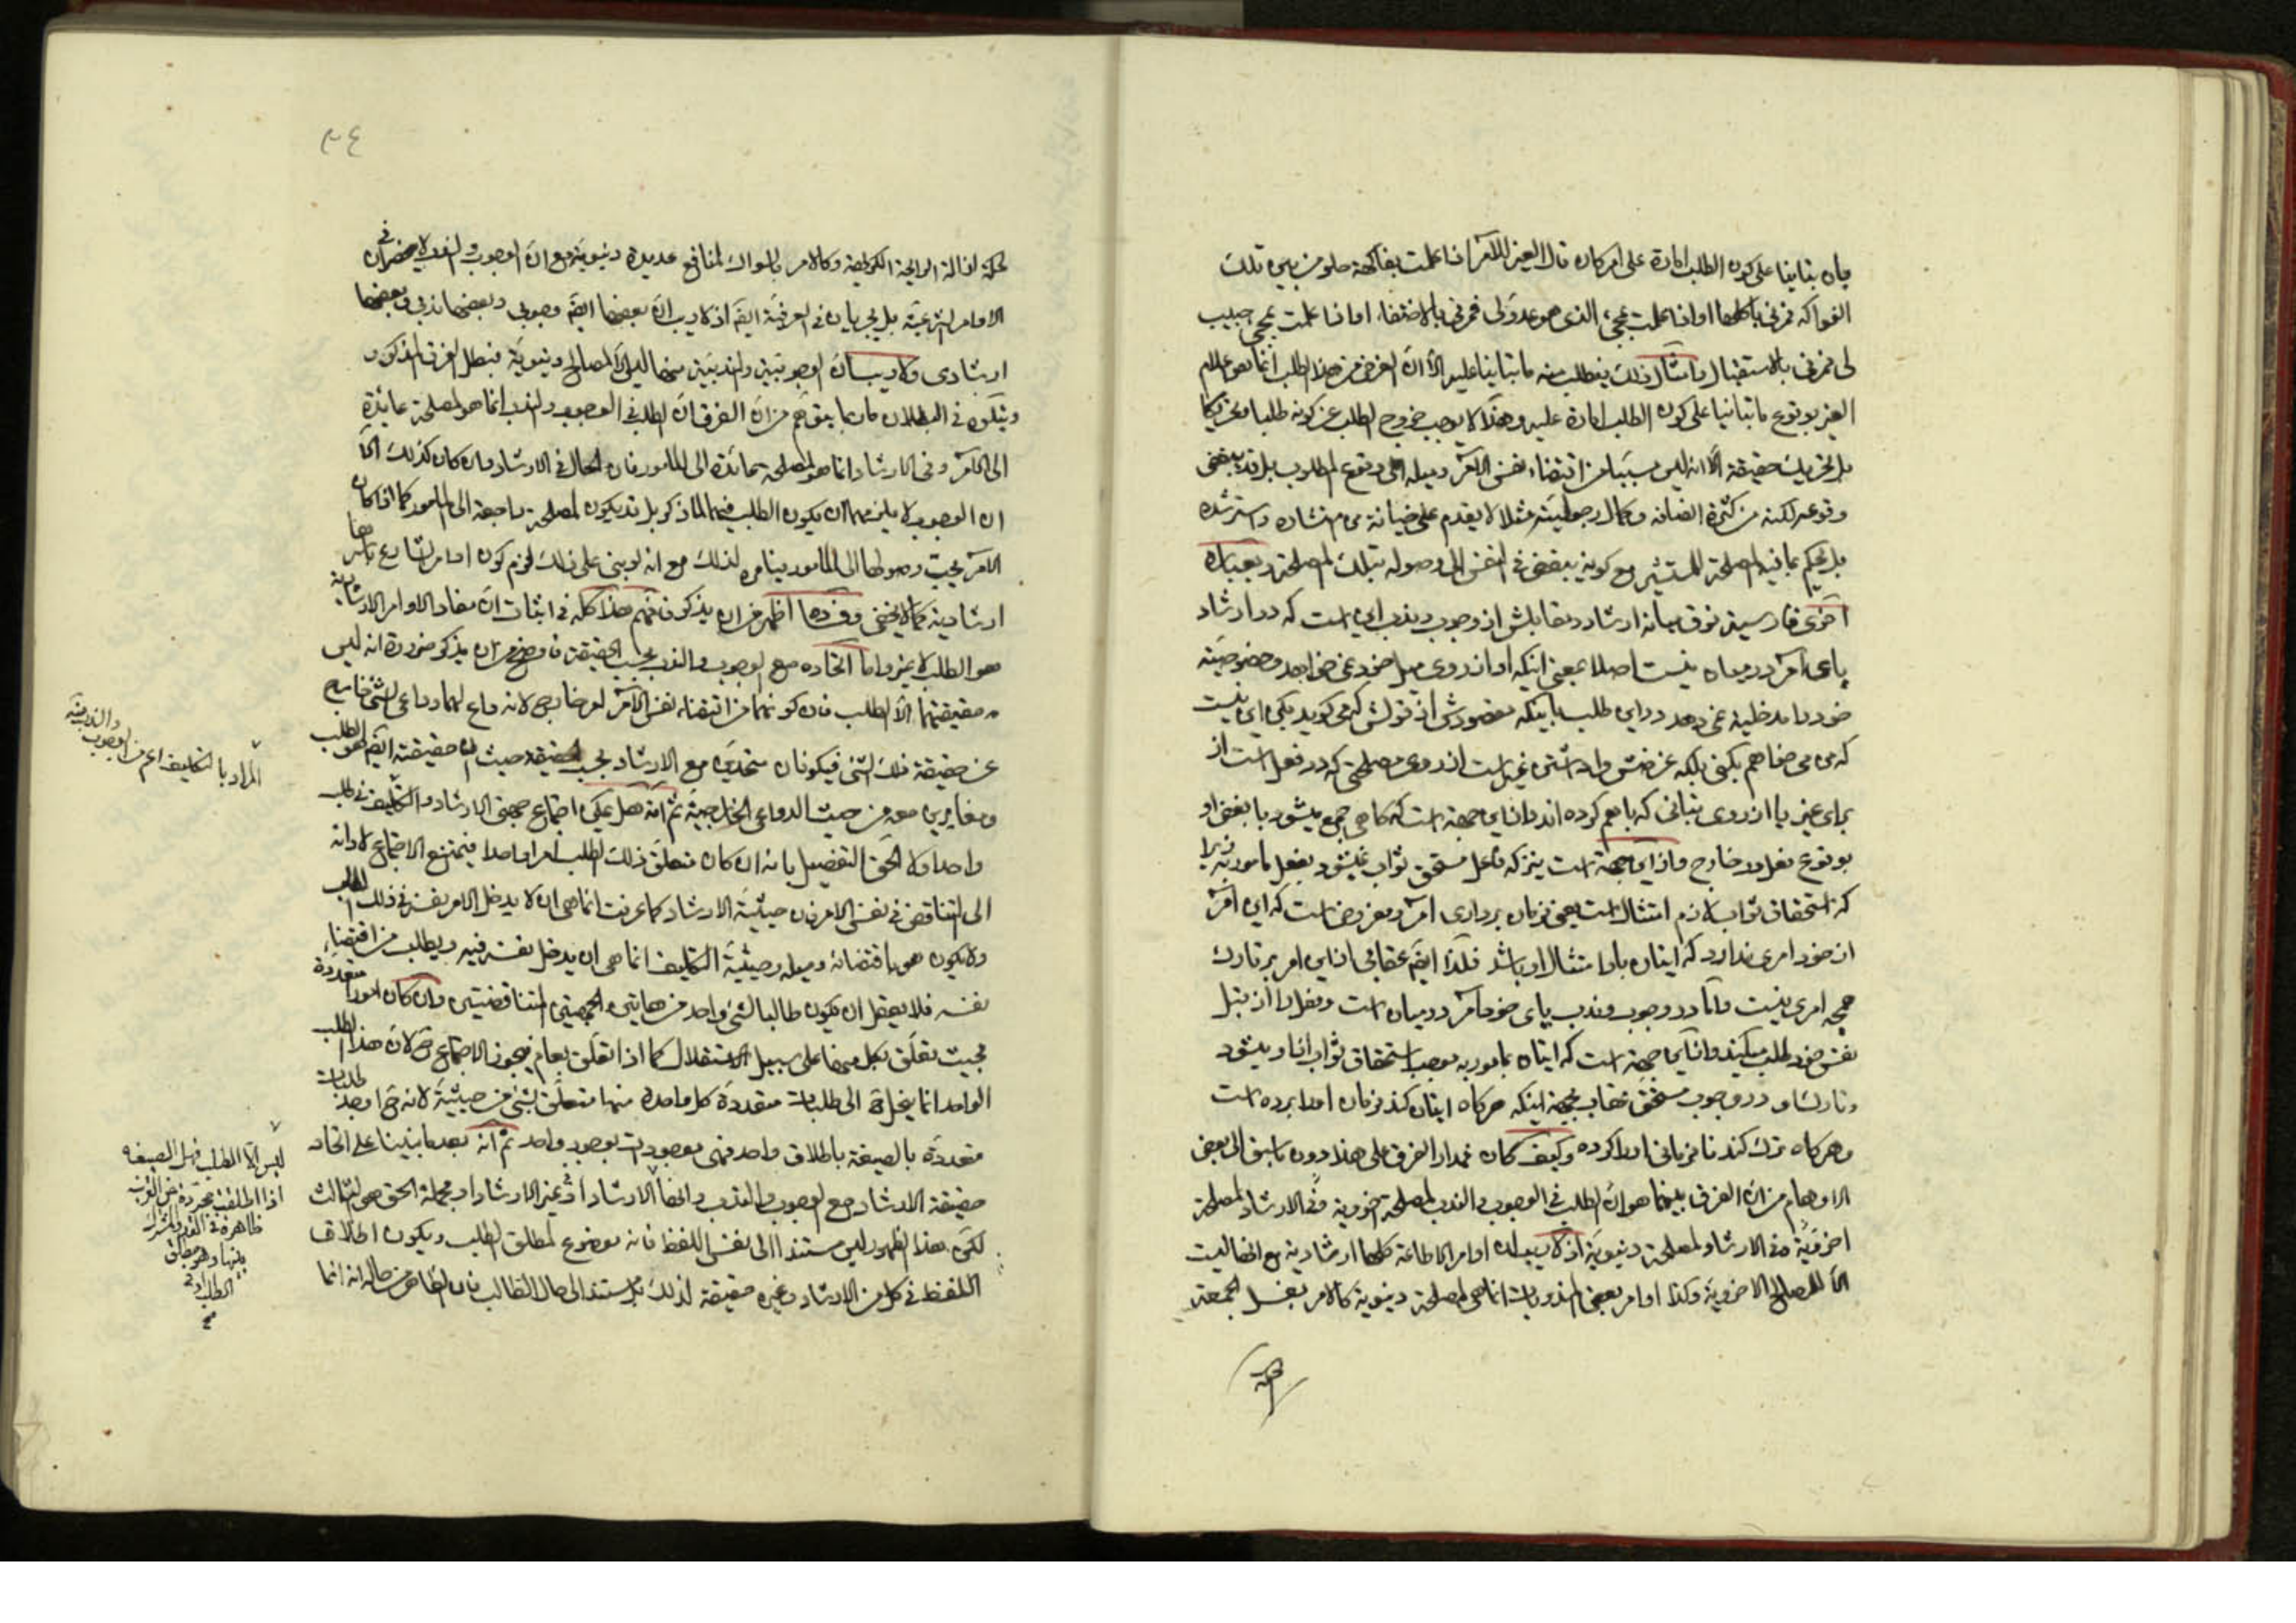 بان بتانينا على كون الطلب امارة على امر كان قال الغير للآمر اذا علمت بفاكهة حلو من بين تلك
الفواكه فمرنى باكلها او اذا علمت بمجئ الذى هو عدو لى فمرنى بالاختفاء او اذا علمت بمجئ حبيب
لى فمرنى بالاستقبال وامثال ذلك فيطلب منه ما تبانينا عليه الا ان الغرض من هذا الطلب انما هو اعلام
الغير بوقوع ما تبانينا على كون الطلب امارة عليه وهذا لا يوجب خروج الطلب عن كونه طلبا وتحريكا
بل تحريك حقيقة الا انه ليس سببا من اقتضاء نفس الآمر وميله الى وقوع المطلوب بل قد يبغض
وقوعه لكنه من كثرة انصافه وكمال رجوليته مثلا لا يقدم على خيانة من استشاره واسترشده
بل يحكم بما فيه المصلحة للمستشير مع كونه يبغض فى النفس الى وصوله بتلك المصلحة وبعبارة
اخرى فارسيته فرق ميانه ارشاد ومقابلش از وجوب وندب اين است كه در ارشاد
پاى آمر در ميان نيست اصلا بمعنى اينكه او از روى ميل خود نمى خواهد وخصوصية
خود را مدخليت نمى دهد در اين طلب با اينكه مقصودش از قولش كه مى كويد بكن اين نيست
كه من مى خواهم بكنى بلكه غرضش واداشتن غير است از روى مصلحتى كه در فعل است از
براى غير يا از روى تبانى كه با هم كرده اند واز اين جهة است كه كاهى جمع ميشود با بغض او
بوقوع فعل در خارج واز اين جهة است نيز كه فاعل مستحق ثواب نميشود بفعل مامور به زيرا
كه استحقاق ثواب لازم امتثال است يعنى فرمان بردارى آمر ومفروض است كه اين آمر
از خود امرى ندارد كه ايتان باو امتثال او باشد فلذا ايضا عقابى از اين امر بر تارك
همچه امرى نيست واما در وجوب وندب پاى خود آمر در ميان است وفعل را از قبل
نفس خود طلب ميكند واز اين جهة است كه ايتان بمامور به موجب استحقاق ثواب از او ميشود
وتارك او در وجوب مستحق عقاب بجهة اينكه هركاه ايتان كند فرمان او را برده است
وهركاه ترك كند نافرمانى او را كرده وكيف كان فمدار الفرق على هذا دون ما سبق الى بعض
الاوهام من ان الفرق بينهما هو ان الطلب فى الوجوب والندب لمصلحة اخروية وفى الارشاد لمصلحة
اخروية وفى الارشاد لمصلحة دنيوية اذ لا ريب ان اوامر الاطاعة كلها ارشادية مع انها ليست
الا للمصالح الاخروية وكذا اوامر بعض المندوبات انما هى لمصلحة دنيوية كالامر بغسل الجمعة
٣٤
لحكمة ازالة الرايحة الكريهة وكالامر بالسواك لمنافع عديدة دنيوية مع ان الوجوب والندب لا ينحصران فى
الاوامر الشرعية بل يجريان فى العرفية ايضا اذ لا ريب ان بعضها ايضا وجوبى وبعضها ندبى وبعضها
ارشادى ولا ريب ان الوجوبيين والندبيين منها ليس الا لمصالح دنيوية فبطل الفرق المذكور
ويتلوه فى البطلان ما ربما يتوهم من ان الفرق ان الطلب فى الوجوب والندب انما هو لمصلحة عائدة
الى الآمر وفى الارشاد انما هو لمصلحة عائدة الى المامور فان الحال فى الارشاد وان كان كذلك الا
ان الوجوب لا يلزم ان يكون الطلب فيهما لما ذكر بل قد يكون لمصلحة راجعة الى المامور كما اذا كان
الآمر يحب وصولها الى المامور فيامره لذلك مع انه لو بنى على ذلك لزم كون اوامر الشارع باسرها
ارشادية كما لا يخفى وفسادها اظهر من ان يذكر فافهم هذا كله فى اثبات ان مفاد الاوامر الارشادية
هو الطلب لا غير واما اتحاده مع الوجوب والندب بحسب الحقيقة فاوضح من ان يذكر ضرورة انه ليس
حقيقتهما الا الطلب فان كونهما من اقتضاء نفس الآمر امر خارجى لانه داع لهما وداعى الشئ خارج
عن حقيقة ذلك الشئ فيكونان متحدين مع الارشاد بحسب الحقيقة حيث ان حقيقته ايضا هو الطلب
ومغايرين معه من حيث الدواعى الخارجية ثم انه هل يمكن اجتماع جهتى الارشاد والتكليف فى طلب
واحد او لا الحق التفصيل بانه ان كان متعلق ذلك الطلب امرا واحدا فيمتنع الاجتماع لادائه
الى التناقض فى نفس الامر فان حيثية الارشاد كما عرفت انما هى ان لا يدخل الآمر نفسه فى ذلك الطلب
ولا يكون هو باقتضائه وميله وحيثية التكليف انما هى ان يدخل نفسه فيه ويطلب من اقتضاء
نفسه فلا يعقل ان يكون طالبا لشئ واحد من هاتين الجهتين المتناقضتين وان كان امورا متعددة
بحيث تعلق بكل منها على سبيل الاستقلال كما اذا تعلق بعام فيجوز الاجتماع ح لان هذا الطلب
الواحد انما ينحل ح الى طلبات متعددة كل واحدة منها متعلق بشئ من حيثية لانه ح اوجد طلبات
متعددة بالصيغة باطلاق واحد فهى موجودات بوجود واحد ثم انه بعد ما بنينا على اتحاد
حقيقة الارشاد مع الوجوب والندب وانها الارشاد او غير الارشاد او مجملة الحق هو الثالث
لكن هذا الظهور ليس مستندا الى نفس اللفظ فانه موضوع لمطلق الطلب ويكون اطلاق
اللفظ فى كل من الارشاد وغيره حقيقة لذلك بل مستند الى حال الطالب فان الظاهر من حاله انه انما
المراد بالتكليف اعم من الوجوب والندب منه
ليس الا الطلب فهل الصيغة
اذا اطلقت مجردة عن القرينة
ظاهرة فى القدر المشترك
بينها وهو مطلق
الطلب او فى
صح